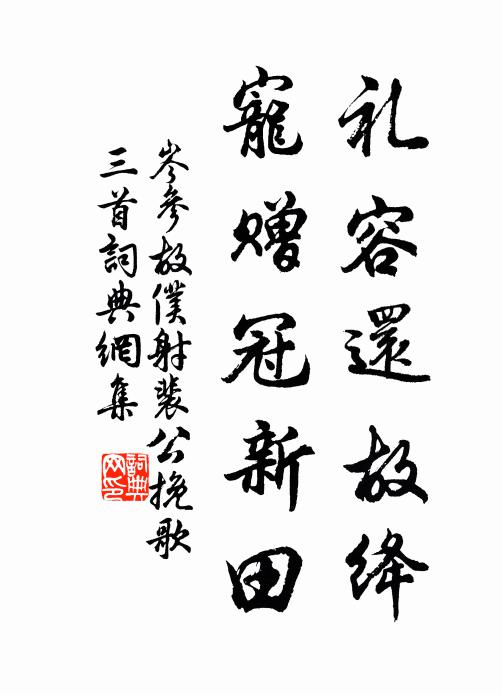 礼容還故绛
寵赠冠新田
岑參故僕射裴公挽歌
三首詞典網集
詞典网印